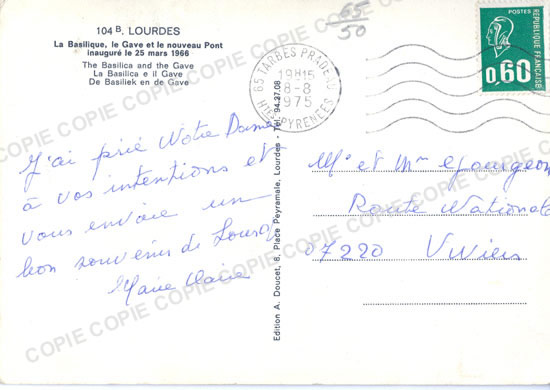 104 B. LOURDES
La Basilique, le Gave et le nouveau Pont
inauguré le 25 mars 1966
The Basilica and the Gave
La Basilica e il Gave
De Basiliek en de Gave
65/50
65 TARBES PRADEAU
19H15
8-8
1975
HTES PYRENEES
POSTES
REPUBLIQUE FRANÇAISE
0,60
J'ai prié Notre Dame
à vos intentions et
vous envoie un
bon souvenir de Lourdes
Marie Claire
Edition A. Doucet, 8, Place Peyramale, Lourdes - Tél. 94.27.08
Mr et Mme Gourgeon
Route Nationale
07220 Viviers
COPIE COPIE COPIE COPIE COPIE COPIE
COPIE COPIE COPIE COPIE COPIE COPIE
COPIE COPIE COPIE COPIE COPIE COPIE